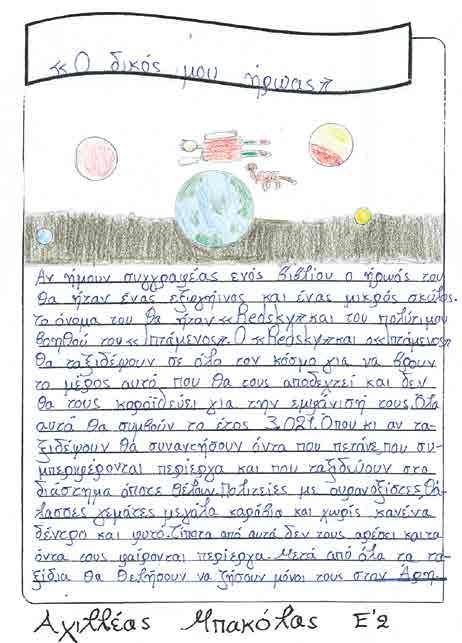 «Ο δικός μου ήρωας»
Αν ήμουν συγγραφέας ενός βιβλίου ο ήρωάς του
θα ήταν ένας εξωγήινος και ένας μικρός σκύλος.
Το όνομα του θα ήταν «Redsky» και του πολύτιμου
βοηθού του «Ιπτάμενος». Ο «Redsky» και ο «Ιπτάμενος»
θα ταξιδέψουν σε όλο τον κόσμο για να βρουν
το μέρος αυτό που θα τους αποδεχτεί και δεν
θα τους κοροϊδεύει για την εμφάνισή τους. Όλα
αυτά θα συμβούν το έτος 3.021. Όπου κι αν τα-
ξιδέψουν θα συναντήσουν όντα που πετάνε, που συ-
μπεριφέρονται περίεργα και που ταξιδεύουν στο
διάστημα όποτε θέλουν. Πολιτείες με ουρανοξίστες, θά-
λασσες γεμάτες μεγάλα καράβια και χωρίς κανένα
δέντρο και φυτό. Τίποτα από αυτά δεν τους αρέσει και τα
όντα τους φαίρονται περίεργα. Μετά από όλα τα τα-
ξίδια θα θελήσουν να ζήσουν μόνοι τους στον Άρη.
Αχιλλέας Μπακόλας Ε'2